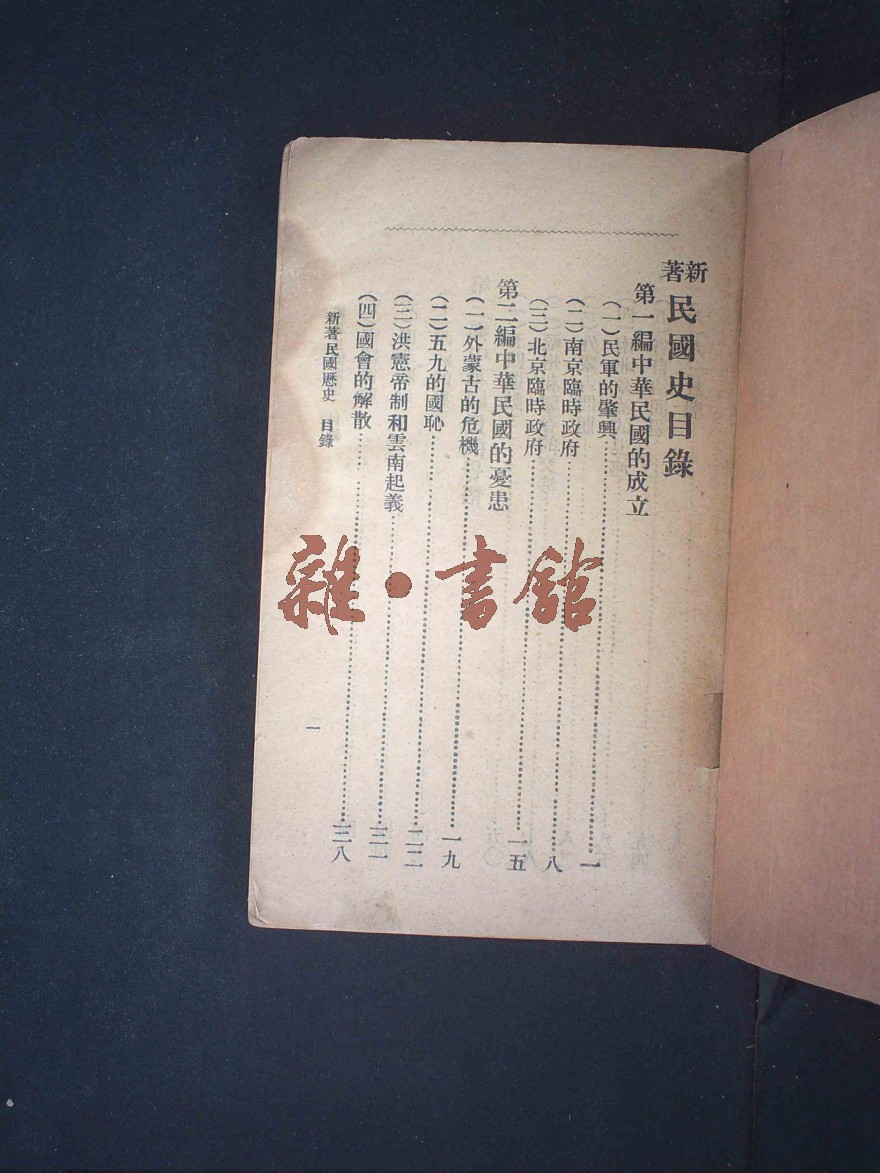 新著民國史目錄
第一編中華民國的成立
(一)民軍的肇興……一
(二)南京臨時政府……八
(三)北京臨時政府……一五
第二編中華民國的憂患
(一)外蒙古的危機……一九
(二)五九的國恥……二二
(三)洪憲帝制和雲南起義……三一
(四)國會的解散……三八
新著民國歷史 目錄
一
雜·書館